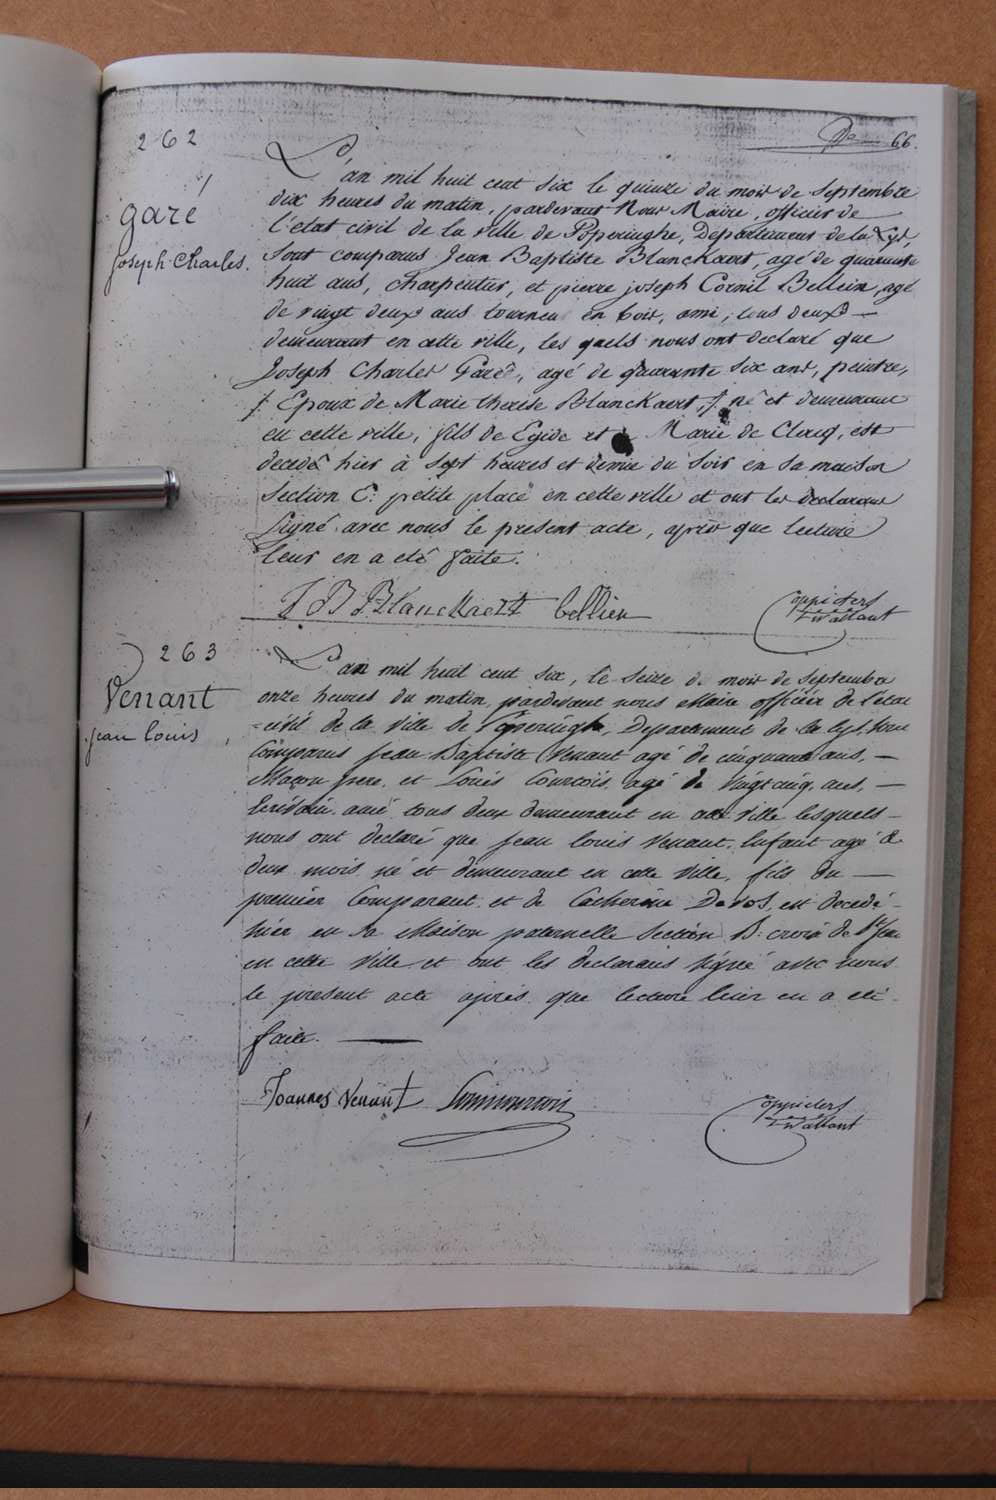 66.
262
garé
joseph Charles.
L'an mil huit cent six le quinze du mois de septembre
dix heures du matin, pardevant Nous Maire, officier de
l'état civil de la ville de Poperinghe, Departement de la Lys,
sont comparus Jean Baptiste Blanckaert, agé de quarante
huit ans, charpentier, et pierre joseph Cornil Bellein, agé
de vingt deux ans tourneur en bois, ami, tous deux
demeurant en cette ville, les quels nous ont declaré que
Joseph Charles Garé, agé de quarante six ans, peintre,
Epoux de Marie therese Blanckaert, né et demeurant
en cette ville, fils de Egide et Marie de Clercq, est
decedé hier à sept heures et demie du soir en sa maison
section C: petite place en cette ville et ont les declarans
signé avec nous le present acte, après que lecture
leur en a eté faite.
J B Blanckaert bellien
oppiders
Wallant
263
Venant
jean louis
L'an mil huit cent six, le seize de mois de septembre
onze heures du matin, pardevant nous Maire officier de l'etat
civil de la ville de Poperinghe, Departement de la lys, sont
Comparus Jean Baptiste Venant agé de cinquante ans,
Maçon pere, et Louis Courtois, agé de vingt cinq ans,
Ecrivain ami tous deux demeurant en cette ville lesquels
nous ont declaré que jean louis Venant, Enfant agé de
deux mois né et demeurant en cette ville, fils du
premier Comparant et de Catherine Devos, est decedé
hier en sa Maison paternelle section B: croix de St Jean
en cette ville et ont les declarans signé avec nous
le present acte après que lecture leur en a eté
faite.
Joannes Venant
oppiders
Wallant